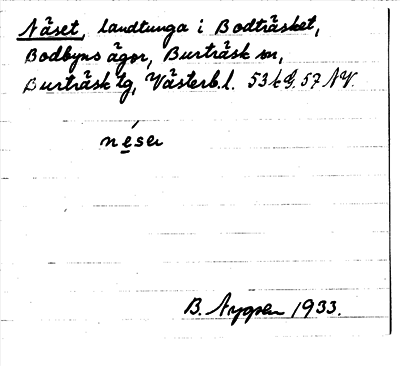 Näset, landtunga i Bodträsket,
Bodbyns ägor, Burträsk sn,
Burträsk tg, Västerb.l. 53 k G. 57 NV.
néser
B. Nygren 1933.